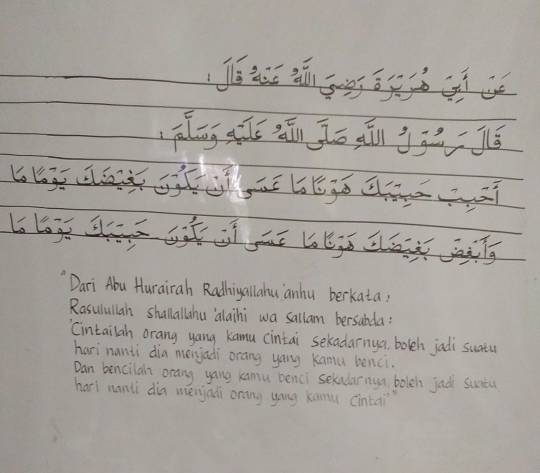 عَنْ أَبِيْ هُرَيْرَةَ رَضِيَ اللَّهُ عَنْهُ قَالَ :
قَالَ رَسُوْلُ اللَّهِ صَلَّى اللَّهُ عَلَيْهِ وَسَلَّمَ :
أَحْبِبْ حَبِيْبَكَ هَوْنًا مَا عَسَى أَنْ يَكُوْنَ بَغِيْضَكَ يَوْمًا مَا
وَأَبْغِضْ بَغِيْضَكَ هَوْنًا مَا عَسَى أَنْ يَكُوْنَ حَبِيْبَكَ يَوْمًا مَا
"Dari Abu Hurairah Radhiyallahu 'anhu berkata :
Rasulullah shallallahu 'alaihi wa sallam bersabda :
'Cintailah orang yang kamu cintai sekadarnya, boleh jadi suatu
hari nanti dia menjadi orang yang kamu benci.
Dan bencilah orang yang kamu benci sekadarnya, boleh jadi suatu
hari nanti dia menjadi orang yang kamu cintai'"